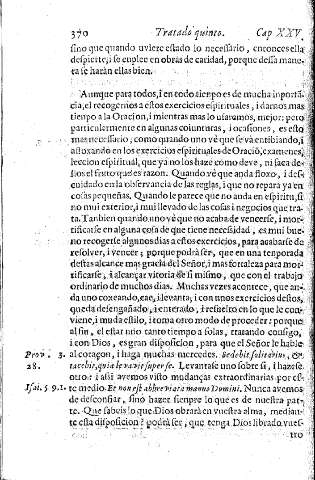 370 Tratado quinto. Cap XXV.
sino que quando uviere estado lo necessario, entonces ella
despierte, i se emplee en obras de caridad, porque dessa mane-
ra se harán ellas bien.
Aunque para todos, i en todo tiempo es de mucha inportã-
cia, el recogernos a estos exercicios espirituales, i darnos mas
tiempo a la Oracion, i mientras mas lo usaremos, mejor: pero
particularmente en algunas coiunturas, i ocasiones, es esto
mas necessario; como quando uno vé que se va entibiando, i
afloxando en los exercicios espirituales de Oració, examenes,
leccion espiritual, que ya no los haze como deve, ni saca de-
llos el fruto que es razon. Quando vé que anda floxo, i des-
cuidado en la observancia de las reglas, i que no repara ya en
cosas pequeñas. Quando le parece que no anda en espiritu, si-
no mui exterior, i mui llevado de las cosas i negocios que tra-
ta. Tanbien quando uno vé que no acaba de vencerse, i mor-
tificarse en alguna cosa de que tiene necessidad, es mui bue-
no recogerse algunos dias a estos exercicios, para acabarse de
resolver, i vencer; porque podrá ser, que en una tenporada
destas alcance mas gracia del Señor, i mas fortaleza para mor-
tificarse, i alcançar vitoria de si mismo, que con el trabajo
ordinario de muchos dias. Muchas vezes acontece, que an-
da uno coxeando, cae, i levanta; i con unos exercicios destos,
queda desengañado, i enterado, i resuelto en lo que le con-
viene, i muda estilo, i toma otro modo de proceder: porque
al fin, el estar uno tanto tiempo a solas, tratando consigo,
i con Dios, es gran disposicion, para que el Señor le hable
Prov. 3. al coraçon, i haga muchas mercedes. Sedebit solitarius, &
28. tacebit, quia levavit super se. Levantase uno sobre si, i hazese
otro: i assi avemos visto mudanças extraordinarias por es-
Isai. 59. 1. te medio. Et non est abbreviata manus Domini. Nunca avemos
de desconfiar, sino hazer sienpre lo que es de nuestra par-
te. Que sabeis lo que Dios obrará en vuestra alma, median-
te esta disposicion? podrá ser, que tenga Dios librado vues-
tro